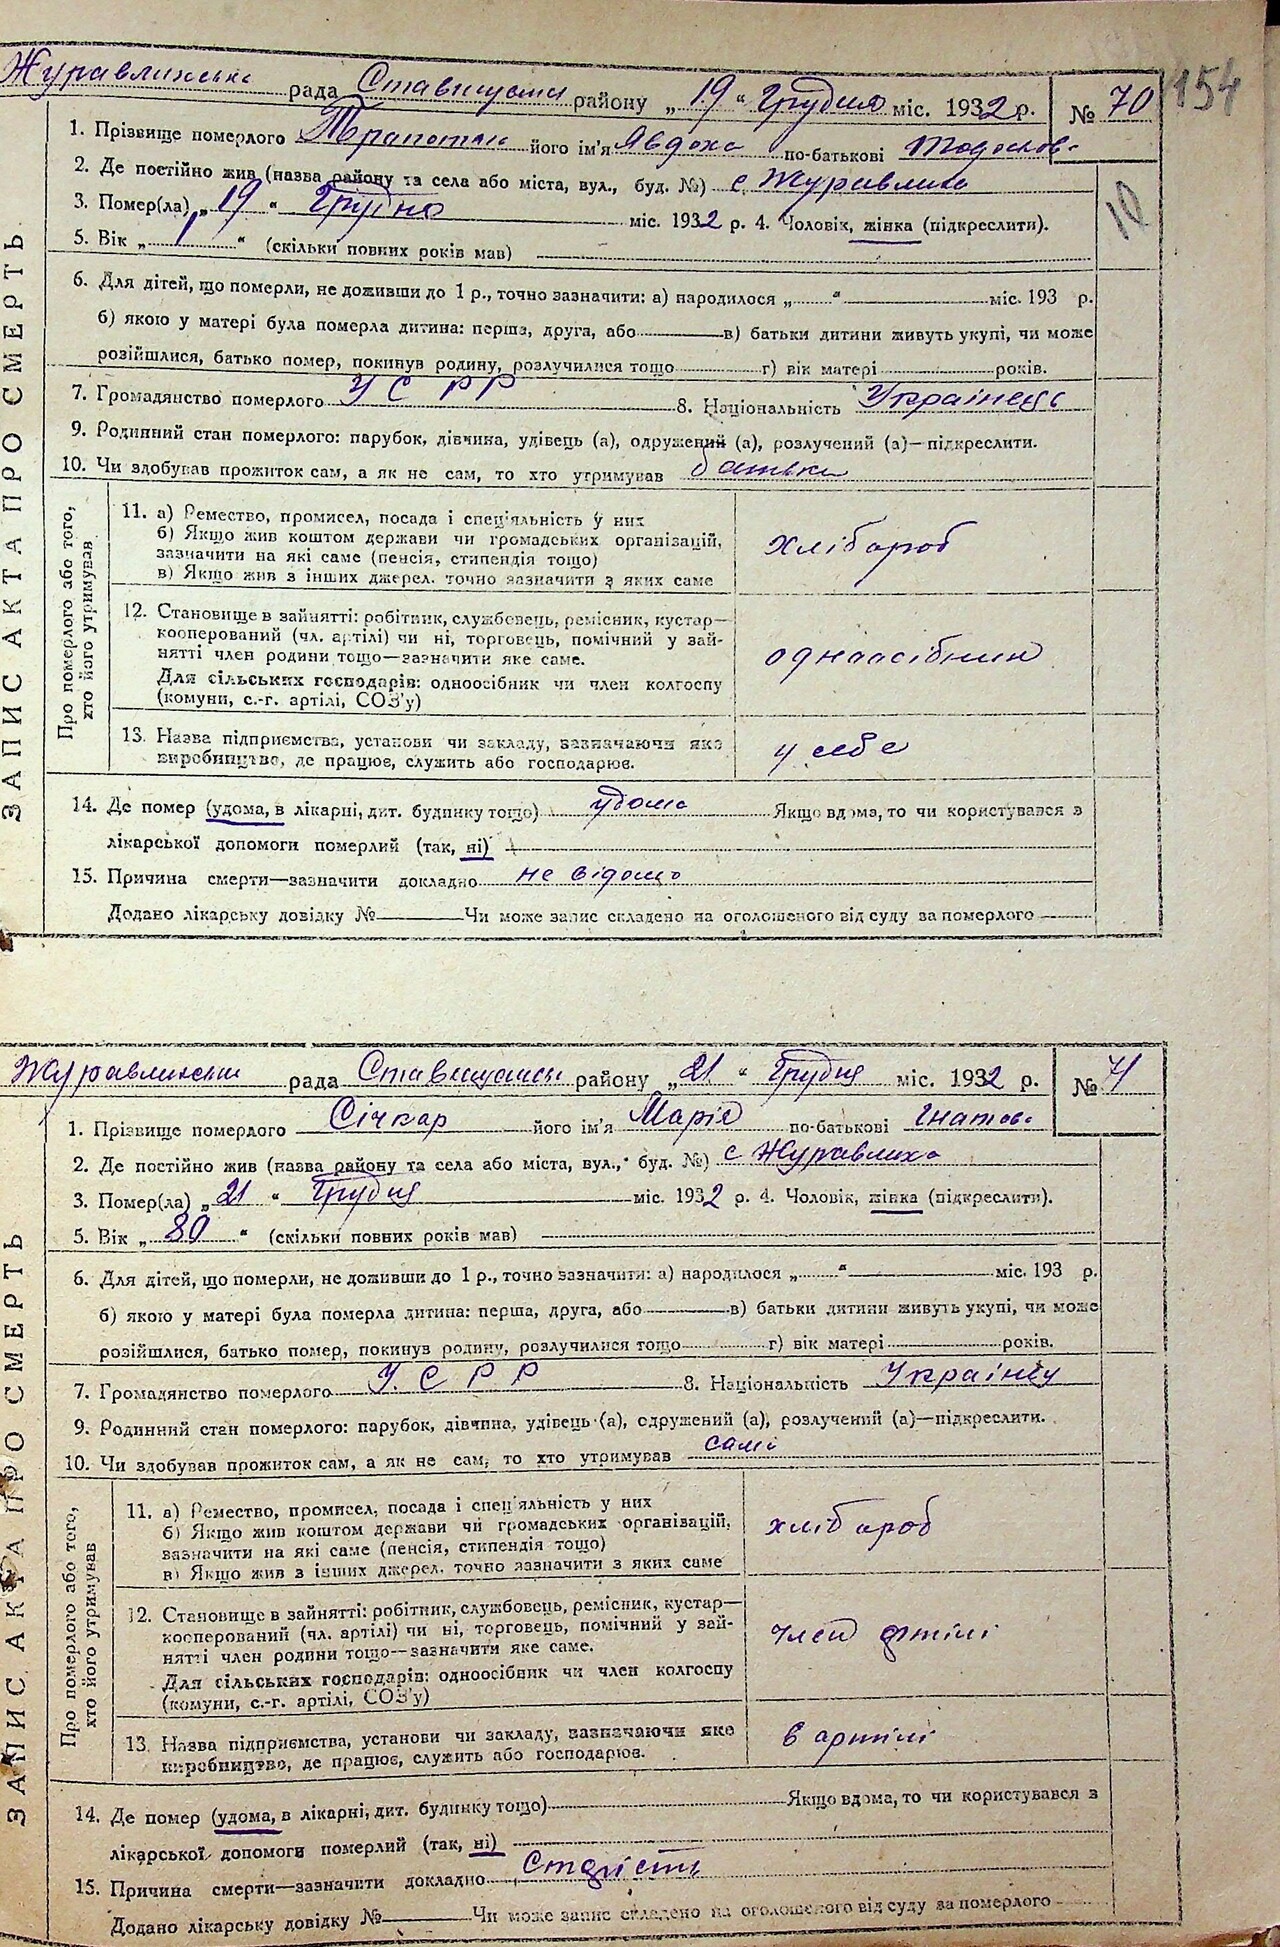 154
Журавлинська рада Ставищями району „19“ Грудня міс. 1932 р. № 70
1. Прізвище померлого його ім'я Явдоха по-батькові
2. Де постійно жив (назва району та села або міста, вул., буд. №) с Журавлиха
3. Помер(ла) „19“ Грудня міс. 1932 р. 4. Чоловік, жінка (підкреслити).
10
5. Вік „1“ (скільки повних років мав)
6. Для дітей, що померли, не доживши до 1 р., точно зазначити: а) народилося „ “ міс. 193 р.
б) якою у матері була померла дитина: перша, друга, або в) батьки дитини живуть укупі, чи може
розійшлися, батько помер, покинув родину, розлучилися тощо г) вік матері років.
7. Громадянство померлого УСРР 8. Національність Українець
9. Родинний стан померлого: парубок, дівчина, удівець (а), одружений (а), розлучений (а)—підкреслити.
10. Чи здобував прожиток сам, а як не сам, то хто утримував батьки
ЗАПИС АКТА ПРО СМЕРТЬ
Про померлого або того,
хто його утримував
11. а) Ремество, промисел, посада і спеціяльність у них
б) Якщо жив коштом держави чи громадських організацій,
зазначити на які саме (пенсія, стипендія тощо)
в) Якщо жив з інших джерел, точно зазначити з яких саме
хлібороб
12. Становище в зайнятті: робітник, службовець, ремісник, кустар—
кооперований (чл. артілі) чи ні, торговець, помічний у зай-
нятті член родини тощо—зазначити яке саме.
Для сільських господарів: одноосібник чи член колгоспу
(комуни, с.-г. артілі, СОЗ'у)
одноосібник
13. Назва підприємства, установи чи закладу, зазначаючи яке
виробництво, де працює, служить або господарює.
у себе
14. Де помер (удома, в лікарні, дит. будинку тощо) удома Якщо вдома, то чи користувався з
лікарської допомоги померлий (так, ні)
15. Причина смерти—зазначити докладно не відомо
Додано лікарську довідку № Чи може запис складено на оголошеного від суду за померлого
Журавлинська рада Ставищями району „21“ Грудня міс. 1932 р. № 71
1. Прізвище померлого Січкар його ім'я Марія по-батькові Гнатов.
2. Де постійно жив (назва району та села або міста, вул., буд. №) с Журавлиха
3. Помер(ла) „21“ Грудня міс. 1932 р. 4. Чоловік, жінка (підкреслити).
5. Вік „80“ (скільки повних років мав)
6. Для дітей, що померли, не доживши до 1 р., точно зазначити: а) народилося „ “ міс. 193 р.
б) якою у матері була померла дитина: перша, друга, або в) батьки дитини живуть укупі, чи може
розійшлися, батько помер, покинув родину, розлучилися тощо г) вік матері років.
7. Громадянство померлого У.СРР 8. Національність Українка
9. Родинний стан померлого: парубок, дівчина, удівець (а), одружений (а), розлучений (а)—підкреслити.
10. Чи здобував прожиток сам, а як не сам, то хто утримував самі
ЗАПИС АКТА ПРО СМЕРТЬ
Про померлого або того,
хто його утримував
11. а) Ремество, промисел, посада і спеціяльність у них
б) Якщо жив коштом держави чи громадських організацій,
зазначити на які саме (пенсія, стипендія тощо)
в) Якщо жив з інших джерел, точно зазначити з яких саме
хлібороб
12. Становище в зайнятті: робітник, службовець, ремісник, кустар—
кооперований (чл. артілі) чи ні, торговець, помічний у зай-
нятті член родини тощо—зазначити яке саме.
Для сільських господарів: одноосібник чи член колгоспу
(комуни, с.-г. артілі, СОЗ'у)
член артілі
13. Назва підприємства, установи чи закладу, зазначаючи яке
виробництво, де працює, служить або господарює.
в артілі
14. Де помер (удома, в лікарні, дит. будинку тощо) Якщо вдома, то чи користувався з
лікарської допомоги померлий (так, ні)
15. Причина смерти—зазначити докладно Старість
Додано лікарську довідку № Чи може запис складено на оголошеного від суду за померлого